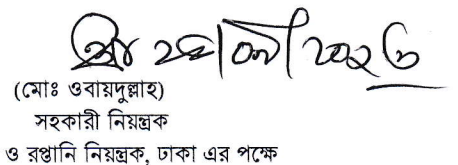 (মোঃ ওবায়দুল্লাহ)
সহকারী নিয়ন্ত্রক
ও রপ্তানি নিয়ন্ত্রক, ঢাকা এর পক্ষে